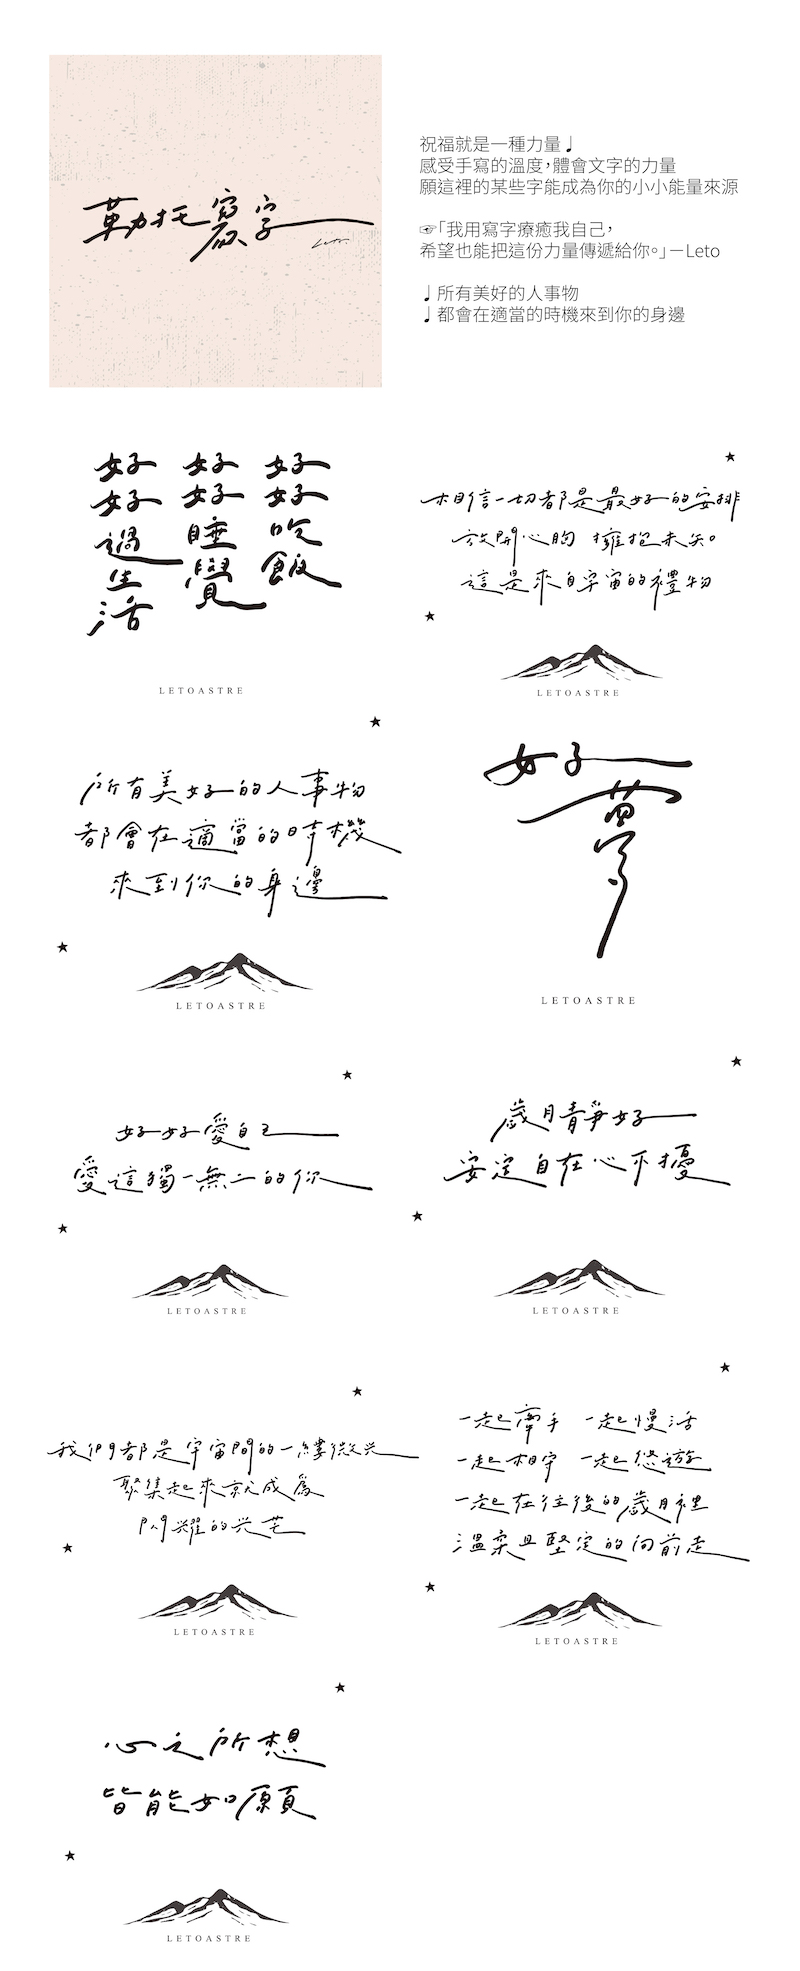 勒托寫字
Leto.
祝福就是一種力量♩
感受手寫的溫度，體會文字的力量
願這裡的某些字能成為你的小小能量來源
☞「我用寫字療癒我自己，
希望也能把這份力量傳遞給你。」—Leto
♩所有美好的人事物
♩都會在適當的時機來到你的身邊
好好吃飯
好好睡覺
好好過生活
LETOASTRE
相信一切都是最好的安排
放開心胸 擁抱未知。
這是來自宇宙的禮物
LETOASTRE
所有美好的人事物
都會在適當的時機
來到你的身邊
LETOASTRE
好夢
LETOASTRE
好好愛自己
愛這獨一無二的你
LETOASTRE
歲月靜好
安定自在心不擾
LETOASTRE
我們都是宇宙間的一縷微光
聚集起來就成為
閃耀的光芒
LETOASTRE
一起牽手 一起慢活
一起相守 一起悠遊
一起在往後的歲月裡
溫柔且堅定的向前走
LETOASTRE
心之所想
皆能如願
LETOASTRE